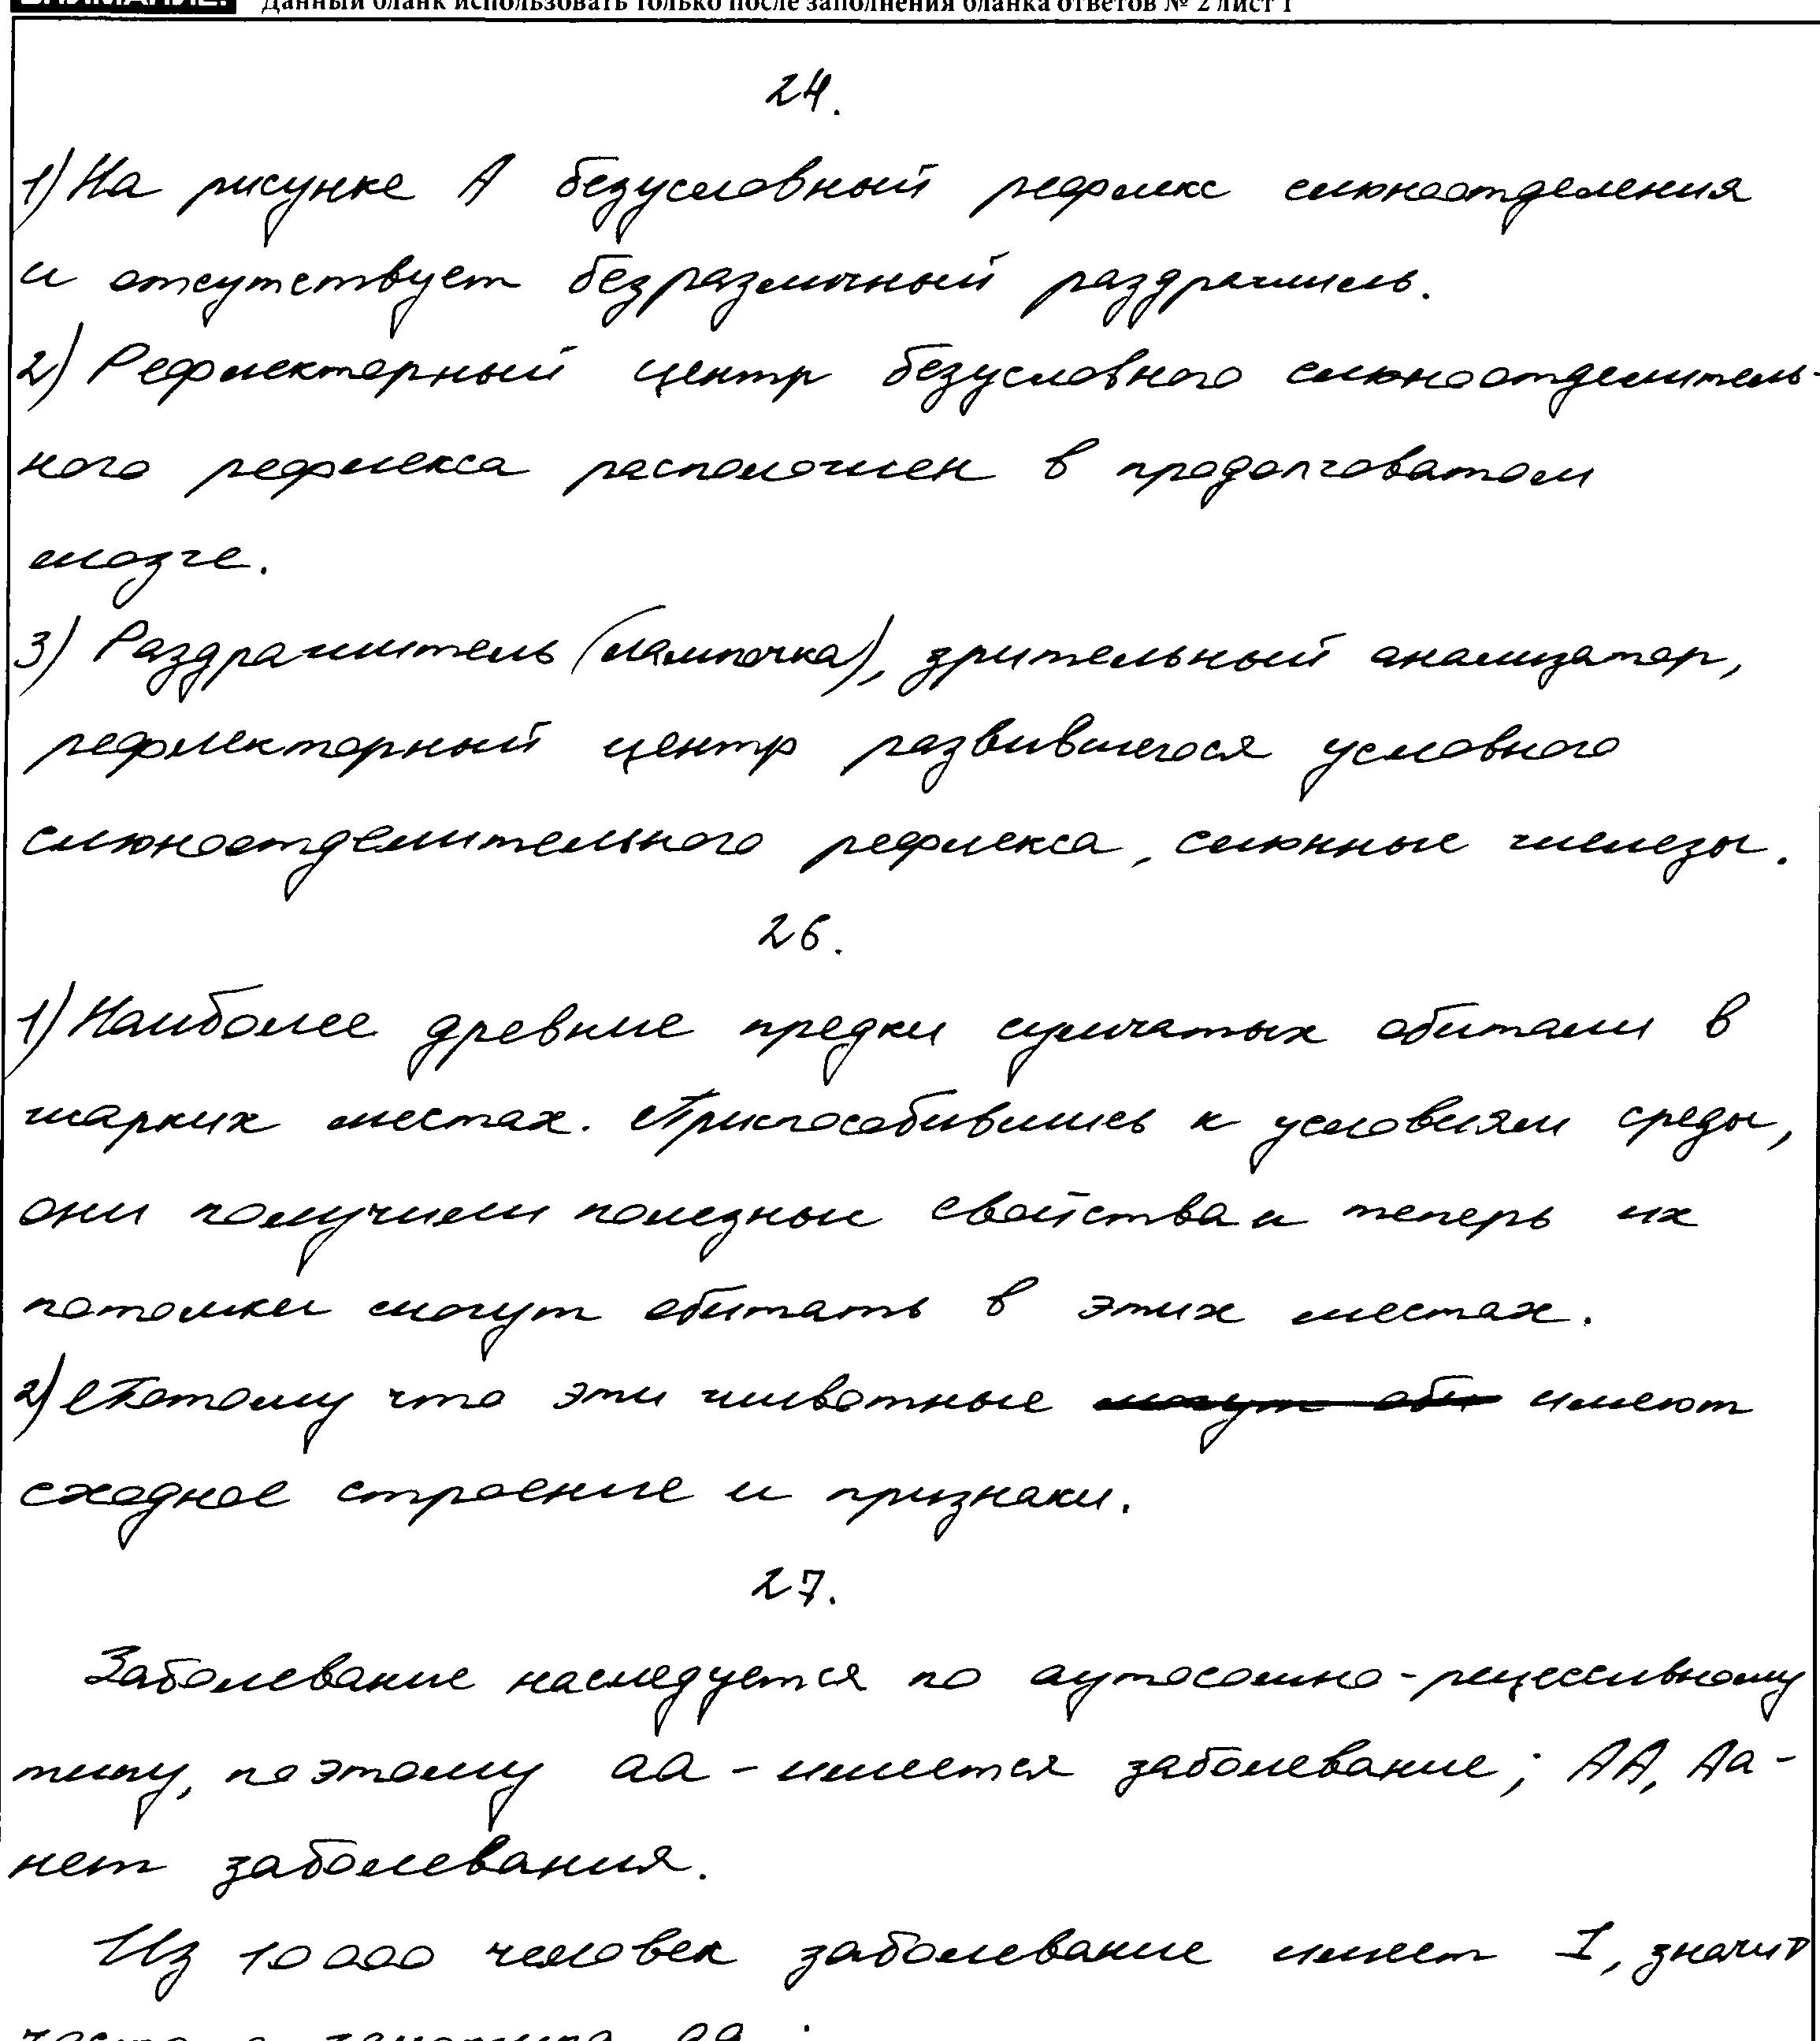 Данный бланк использовать только после заполнения бланка ответов № 2 лист 1
24.
1) На рисунке А безусловный рефлекс слюноотделения
и отсутствует безразличный раздражитель.
2) Рефлекторный центр безусловного слюноотделитель-
ного рефлекса расположен в продолговатом
мозге.
3) Раздражитель (лампочка), зрительный анализатор,
рефлекторный центр развившегося условного
слюноотделительного рефлекса, слюнные железы.
26.
1) Наиболее древние предки сумчатых обитали в
жарких местах. Приспособившись к условиям среды,
они получили полезные свойства и теперь их
потомки могут обитать в этих местах.
2) Потому что эти животные имеют
сходное строение и признаки.
27.
Заболевание наследуется по аутосомно-рецессивному
типу, поэтому аа - имеется заболевание; АА, Аа -
нет заболевания.
Из 10000 человек заболевание имеет 1, значит